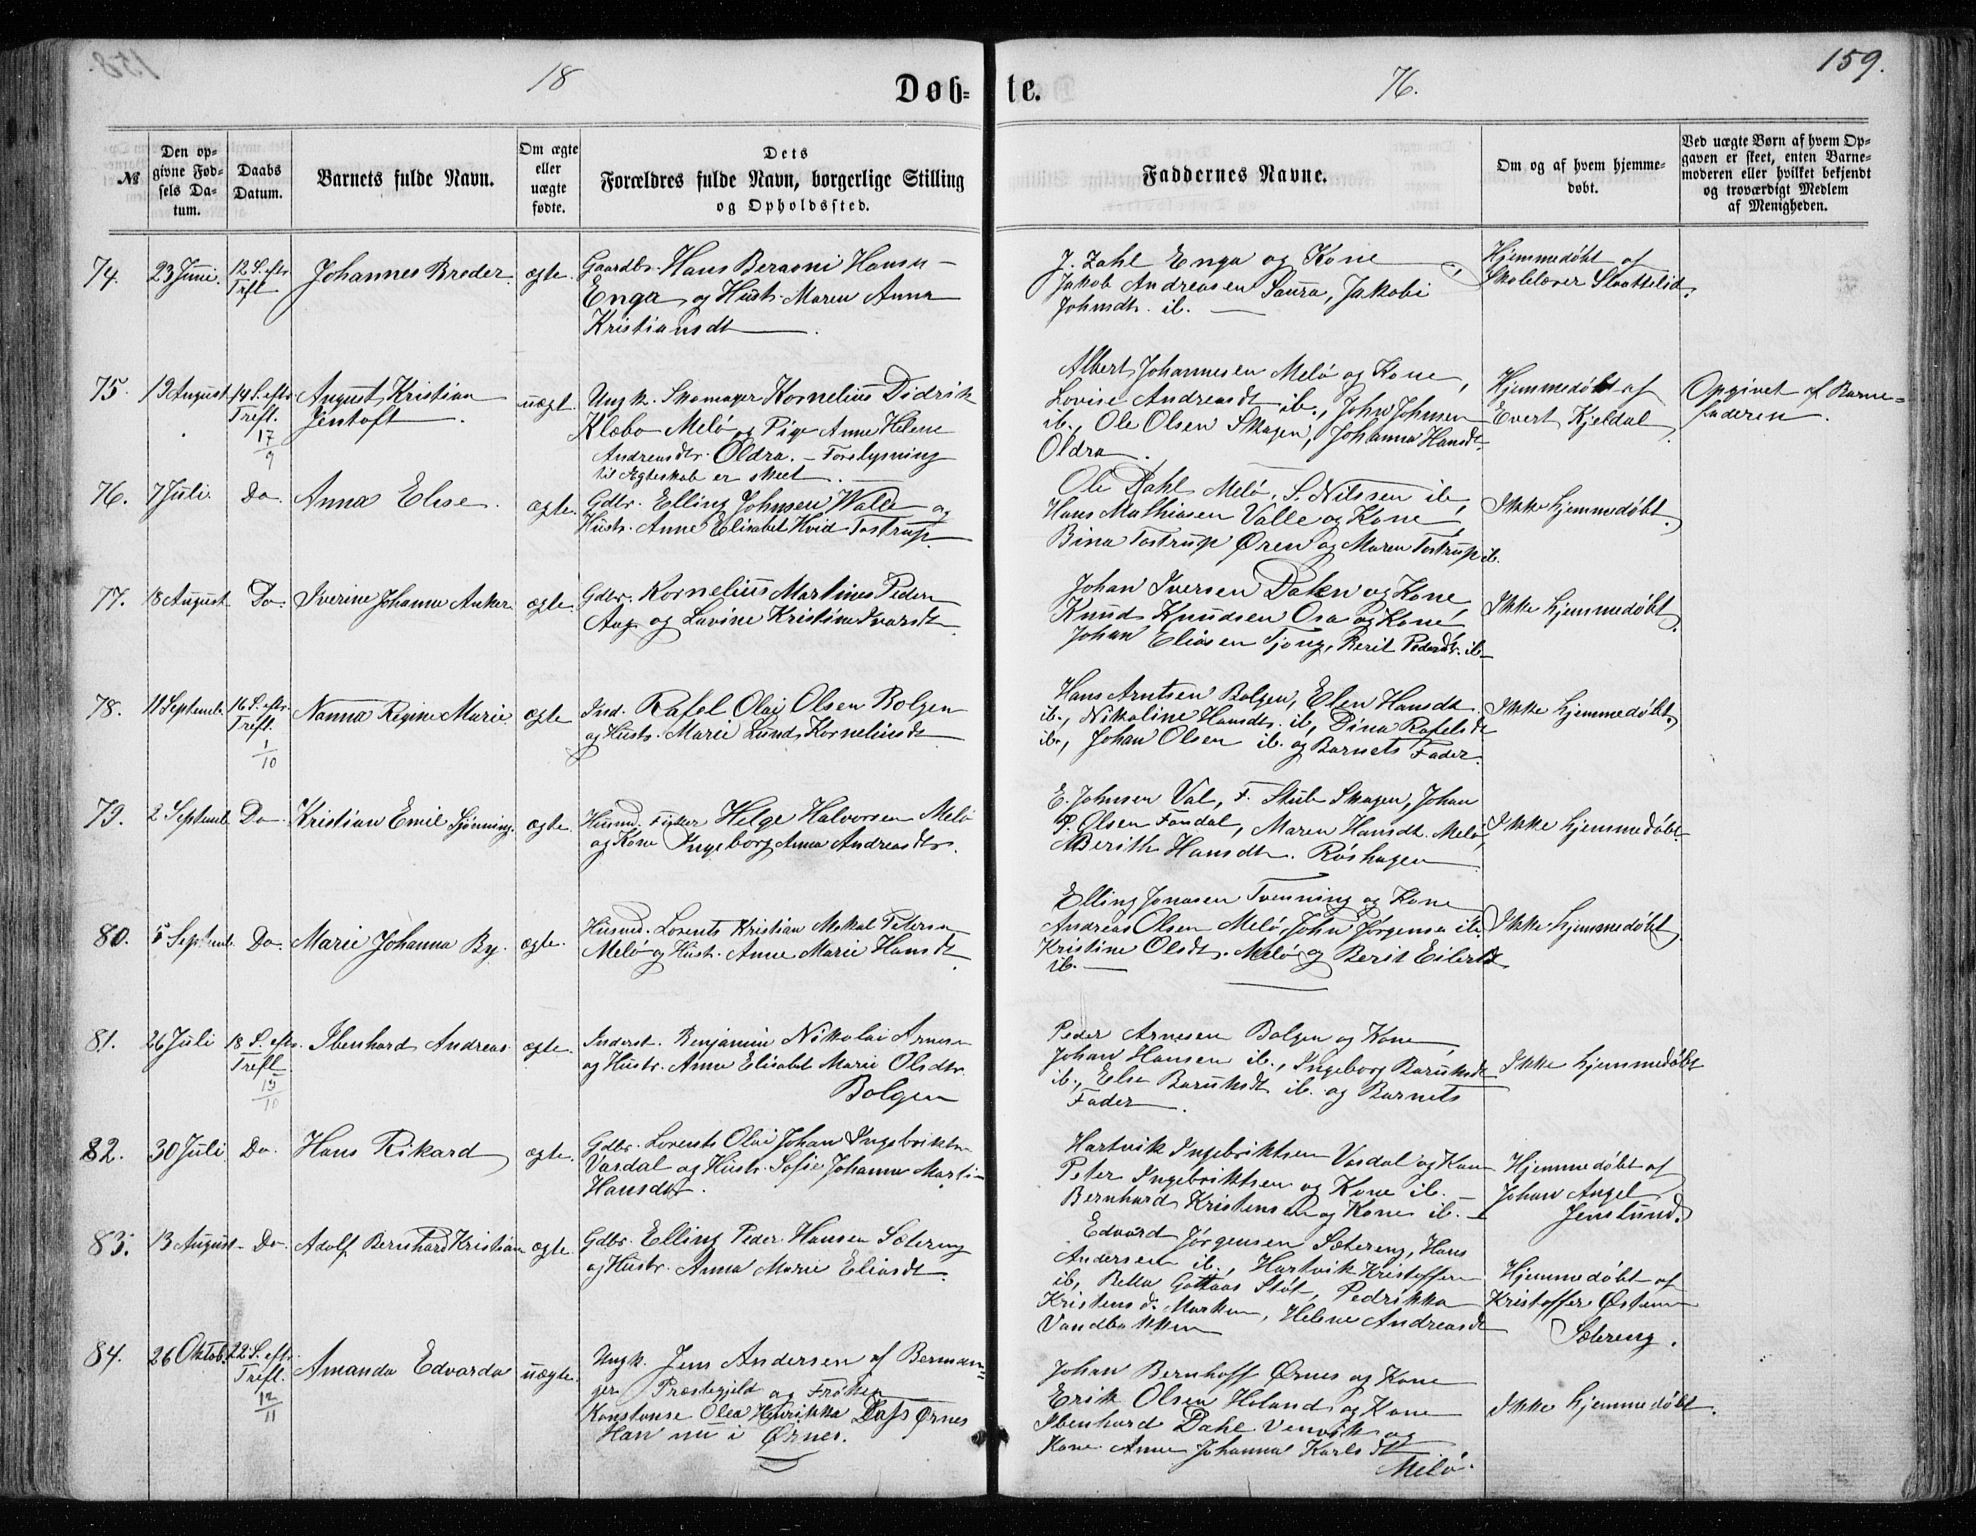 159.
18
76.
Døb-
te.
№
Den op-
givne Fød-
sels Da-
tum.
Daabs
Datum.
Barnets fulde Navn.
Om ægte
eller
uægte
fødte.
Dets
Forældres fulde Navn, borgerlige Stilling
og Opholdssted.
Faddernes Navne.
Om og af hvem hjemme-
døbt.
Ved uægte Børn af hvem Op-
gaven er skeet, enten Barne-
moderen eller hvilket bekjendt
og troværdigt Medlem
af Menigheden.
74.
23 Juni.
12 S. eftr
Trft
Johannes Breder
ægte.
Gaardbr. Hans Beraoni Hansen
Enga og Hustr. Maren Anna
Kristiansdt
J. Zahl Enga og Kone
Jakob Andreasen Saura, Jakobi
Johnsdt. ib.
Hjemmedøbt af
Skolelærer Slaattelid.
75.
13 August
14 S. eftr
Treft.
17/9
August Kristian
Jentoft
uægt.
Ungk. Skomager Kornelius Didrik
Klæbo Melö og Pige Anne Helene
Andreasdtr. Oldra. - Forelysning
til Ægteskab er skeet
Albert Johannesen Melö og Kone,
Lovise Andreasdt ib., John Johnsen
ib., Ole Olsen Skagen, Johanna Hansdt.
Oldra
Hjemmedøbt af
Evert Kjeldal
Opgivet af Barne-
faderen.
76.
7 Juli
Do.
Anna Elise.
ægte.
Gdbr. Elling Johnsen Walle og
Hustr. Anne Elisabet Hvid Tostrup.
Ole Dahl Melö, S. Nilssen ib,
Hans Mathiasen Valle og Kone,
Bina Tostrup Ören og Maren Tostrup ib.
Ikke hjemmedøbt.
77.
18 August
Do.
Iverine Johanna Anker
ægte
Gdbr. Kornelius Martinus Peder
Aag og Lavine Kristine Ivarsdt.
Johan Iversen Dalen og Kone,
Knud Knudsen Osa og Kone,
Johan Eliasen Tjong, Berit Pedersdt. ib
Ikke hjemmedøbt.
78.
11 Septemb.
16 S. eftr.
Treft.
1/10
Nanna Regine Marie
ægte
Ind. Rafel Olai Olsen Bolgen
og Hustr. Marie Lund Korneliusdt
Hans Arntsen Bolgen, Elen Hansdt
ib., Nikoline Hansdt. ib, Dina Rafelsdt
ib., Johan Olsen ib. og Barnets Fader.
Ikke hjemmedøbt.
79.
2 Septemb.
Do
Kristian Emil Sjönning.
ægte.
Husmd. Fisker Helge Halvorsen Melö
og Kone Ingeborg Anna Andreasdtr.
E. Johnsen Val, F. Stub Skagen, Johan
P. Olsen Fondal, Maren Hansdt. Melö,
Berith Hansdt. Röshagen
Ikke hjemmedøbt.
80.
5 Septemb.
Do
Marie Johanna By.
ægte.
Husmd. Lorents Kristian Petersen
Melö og Hustr. Anne Marie Hansdt
Elling Jonasen Tvenning og Kone
Andreas Olsen Melö, John Jörgensen ib.
Kristine Olsdt. Melö og Berit Eilertsdt
ib.
Ikke hjemmedøbt.
81.
26 Juli
18 S. eftr.
Treft
15/10
Ibenhard Andreas
ægte.
Inderst. Benjamin Nikolai Arnesen
og Hustr. Anne Elisabet Marie Olsdtr.
Bolgen
Peder Arnesen Bolgen og Kone,
Johan Hansen ib., Ingeborg Baruksdt
ib., Else Baruksdt ib. og Barnets
Fader.
Ikke hjemmedøbt
82.
30 Juli
Do.
Hans Rikard
ægte.
Gdbr. Lorents Olai Johan Ingebriktsen
Vasdal og Hustr. Sofie Johanna Marti-
Hansdtr.
Hartvik Ingebriktsen Vasdal og Kone
Peter Ingebriktsen og Kone ib. -
Bernhard Kristensen og Kone ib.
Hjemmedøbt af
Johan Angel
Jenslund.
83.
13 August
Do
Adolf Bernhard Kristian
ægte.
Gdbr. Elling Peder Hansen Sætereng
og Hustr. Anna Marie Eliasdt.
Edvard Jörgensen Sætereng, Hans
Andersen ib., Hartvik Kristoffersen
ib, Rebekka Gottaas Stöt, Pedrikka
Kristensd. Marken, Helene Andreasdt
Vandbakken
Hjemmedøbt af
Kristoffer Östensen
Sætereng.
84.
26 Oktob.
22 S. eftr.
Treft.
12/11
Amanda Edvarda
uægte.
Ungk. Jens Andersen af Berman-
ger Præstegjeld og Fröken
Konstanse Olea Henrikka Dass Ørnes
Han nu i Ørnes.
Johan Bernhoff Ørnes og Kone
Erik Olsen Holand og Kone
Ibenhard Dahl Venvik og
Kone Anne Johanna Karlsdt
Melö.
Ikke hjemmedøbt.